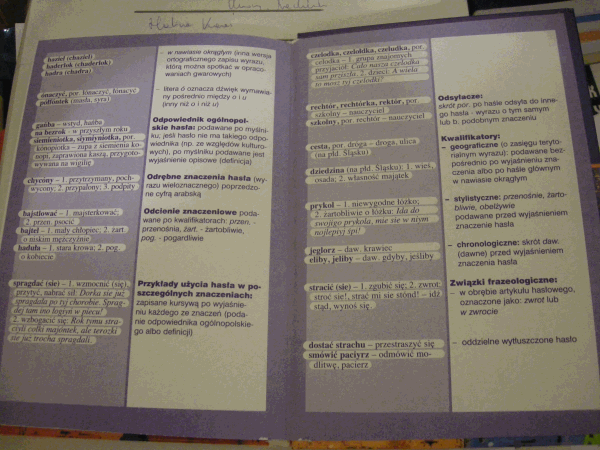 baziel (chaziel)
haderlok (chaderlok)
hadra (chadra)
onaczyć, por. łonaczyć, łónacyć
półfóniek (snada, syra)
gańba – wstyd, hańba
na bezrok - w przyszłym roku
siemieniotka, symiyniotka, por.
kónopiotka – zupa z siemienia ko-
nopi, zaprawiona kaszą, przygoto-
wywana na wigilię
chycóny – 1. przytrzymany, poch-
wycony; 2. przypalony; 3. podpity
bajstlować – 1. majsterkować;
2. przen. psocić
bajtel – 1. mały chłopiec; 2. żart.
o niskim mężczyźnie
haduła – 1. stara krowa; 2. pog.
o kobiecie
spragdać (sie) – 1. wzmocnić (się),
przytyć, nabrać sił:
2. wzbogacić się:
– w nawiasie okrągłym (inna wersja
ortograficznego zapisu wyrazu,
którą można spotkać w opraco-
waniach gwarowych)
– litera ó oznacza dźwięk wymawia-
ny pośrednio między o i u
(inny niż o i niż u)
Odpowiednik ogólnopol-
skie hasła: podawane po myślni-
ku; jeśli hasło nie ma takiego odpo-
wiednika (np. ze względów kulturo-
wych), po myślniku podawane jest
wyjaśnienie opisowe (definicja)
Odrębne znaczenia hasła (wy-
razu wieloznacznego) poprzedzo-
ne cyfrą arabską
Odcienie znaczeniowe poda-
wane po kwalifikatorach: przen. -
przenośnia, żart. - żartobliwie,
pog. - pogardliwie
Przykłady użycia hasła w po-
szczególnych znaczeniach:
zapisane kursywą po wyjaśnie-
niu każdego ze znaczeń (poda-
nie odpowiednika ogólnopolskie-
go albo definicji)
czelodka, czelołdka, czeludka, por.
celodka – 1. grupa znajomych
przyjaciół: Cało nasza czelodka
tam prziszła. 2. dzieci: A wiela
to mosz tyj czelodki?
rechtór, rechtórka, rektór, por.
szkolny – nauczyciel
szkolny, por. rechtór – nauczyciel
cesta, por. dróga – droga, ulica
(na płd. Śląsku)
dziedzina (na płd. Śląsku): 1. wieś,
osada; 2. własność majątek
prykol – 1. niewygodne łóżko;
2. żartobliwie o łóżku: Ida do
swojigo prykola, mie sie w nim
nojlepij śpi!
jeglorz – daw. krawiec
eliby, jeliby – daw. gdyby, jeśliby
stracić (sie) – 1. zgubić się; 2. zwrot:
stroć sie!, strać mi sie stónd! – idź
stąd, wynoś się
dostać strachu – przestraszyć się
smówić paciyrz – odmówić mo-
dlitwę, pacierz
Odsyłacze:
skrót por. po haśle odsyła do inne-
go hasła - wyrazu o tym samym
lub b. podobnym znaczeniu
Kwalifikatory:
– geograficzne (o zasięgu teryto-
rialnym wyrazu): podawane bez-
pośrednio po wyjaśnieniu zna-
czenia albo po haśle głównym
w nawiasie okrągłym
– stylistyczne: przenośnie, żarto-
bliwie, obelżywie
podawane przed wyjaśnieniem
znaczenia hasła
– chronologiczne: skrót daw.
(dawne) przed wyjaśnieniem
znaczenia hasła
Związki frazeologiczne:
– w obrębie artykułu hasłowego,
oznaczone jako: zwrot lub
w zwrocie
– oddzielne wytłuszczone hasło